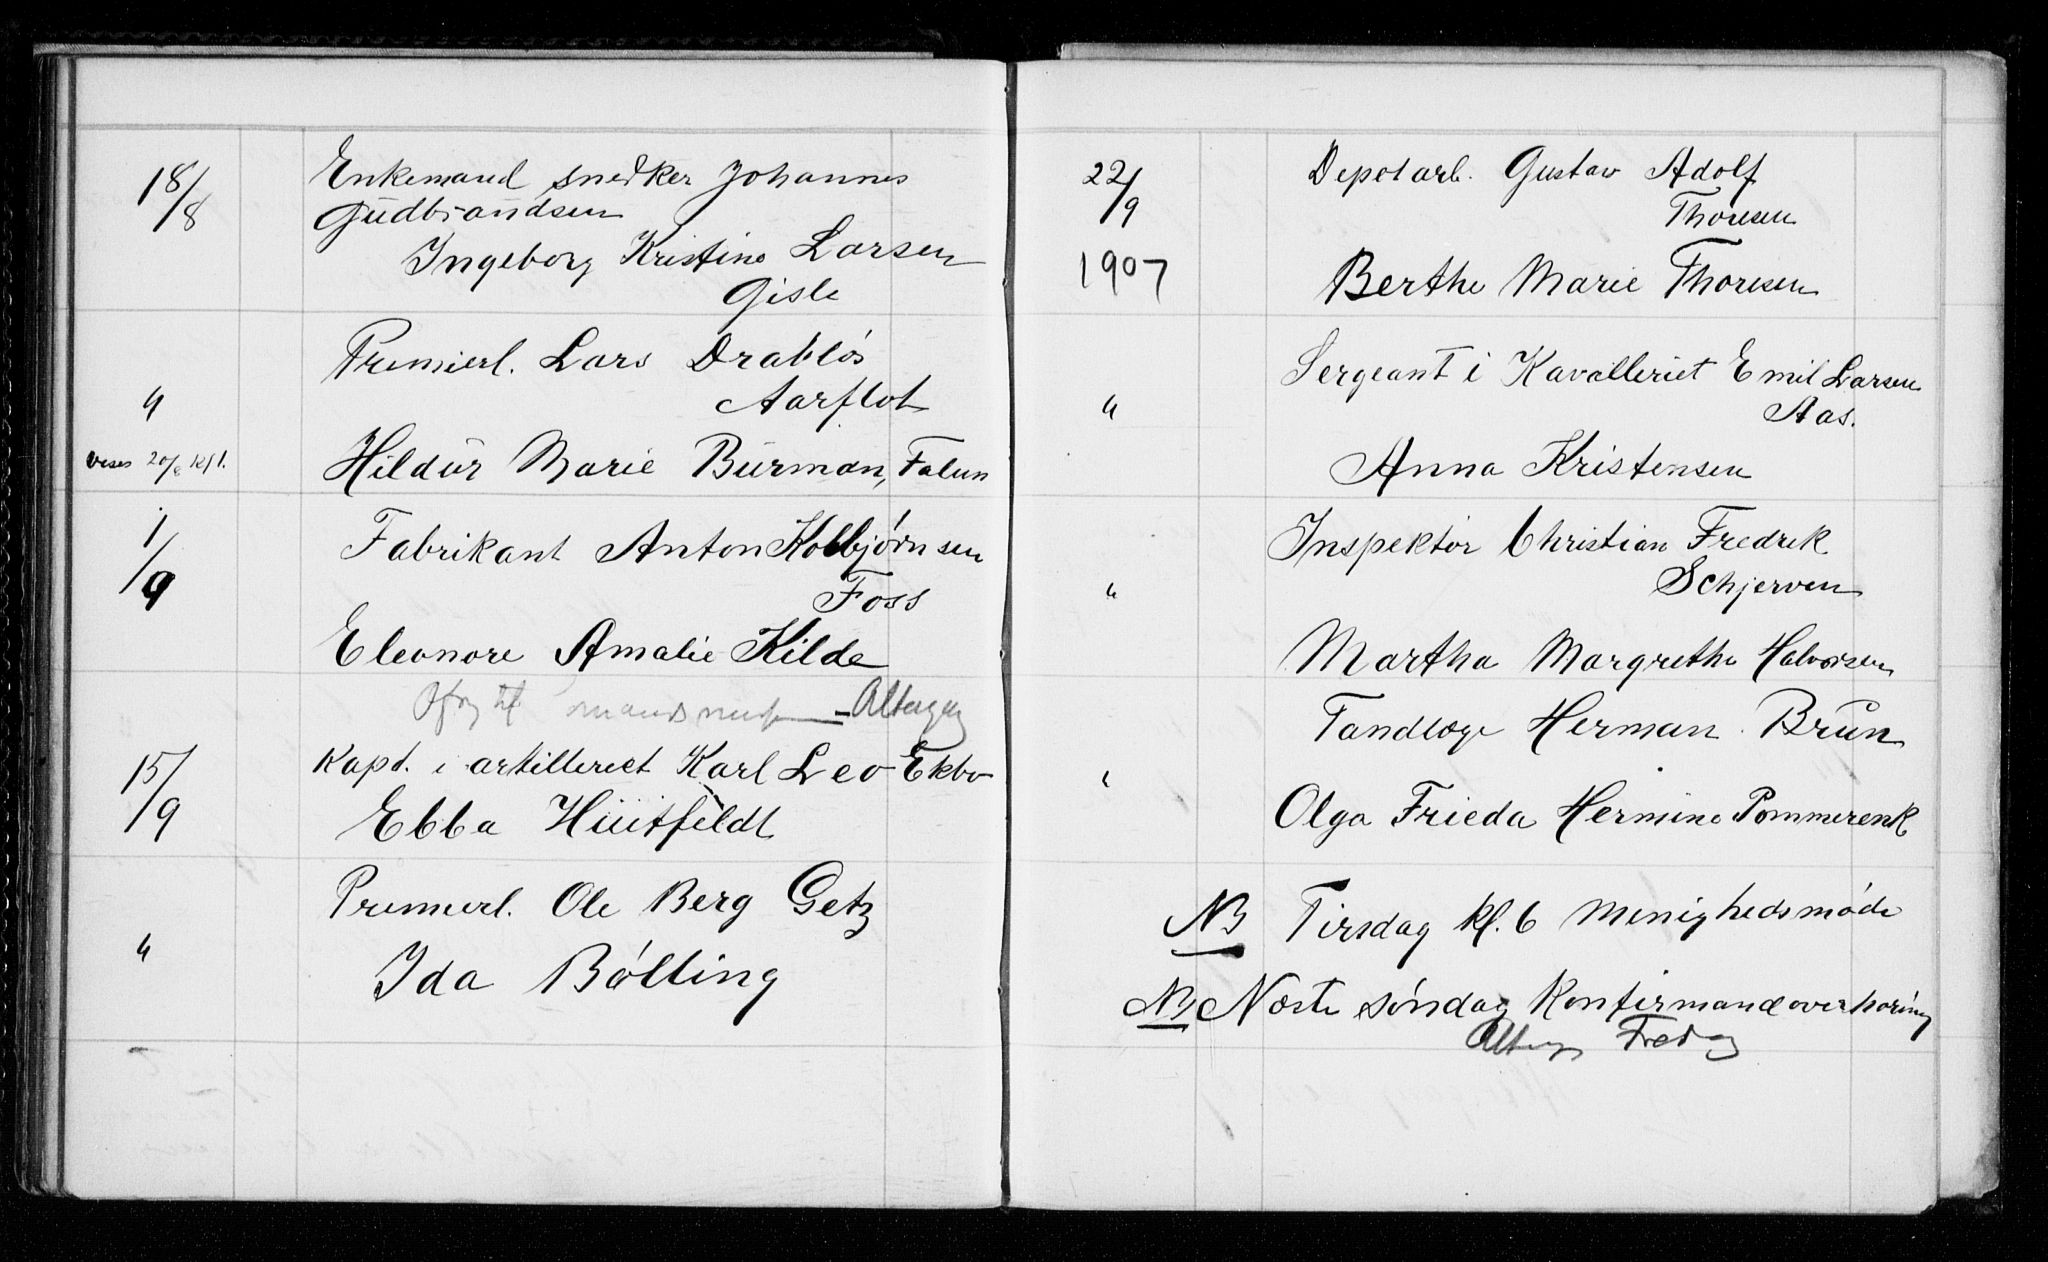 18/8
Enkemand snedker Johannes
Gudbrandsen
Ingeborg Kristine Larsen
Gisle
"
Premierl. Lars Drabløs
Aarflot
vies 20/8 Kl 1.
Hildur Marie Burman, Falun
1/9
Fabrikant Anton Kolbjørnsen
Foss
Eleonore Amalie Kilde
Altergang
15/9
Kapt. i artilleriet Karl Leo Ekbo
Ebba Huitfeldt
"
Premierl. Ole Berg Getz
Ida Bølling
22/9
1907
Depotarb. Gustav Adolf
Thoresen
Berthe Marie Thoresen
"
Sergeant i Kavalleriet Emil Larsen
Aas.
Anna Kristensen
"
Inspektør Christian Fredrik
Schjerven
Martha Margrethe Halvorsen
"
Tandlæge Herman Brun
Olga Frieda Hermine Pommerenk
NB Tirsdag kl. 6 Menighedsmøde
NB Næste søndag Konfirmandoverhøring
Alterg Fredag